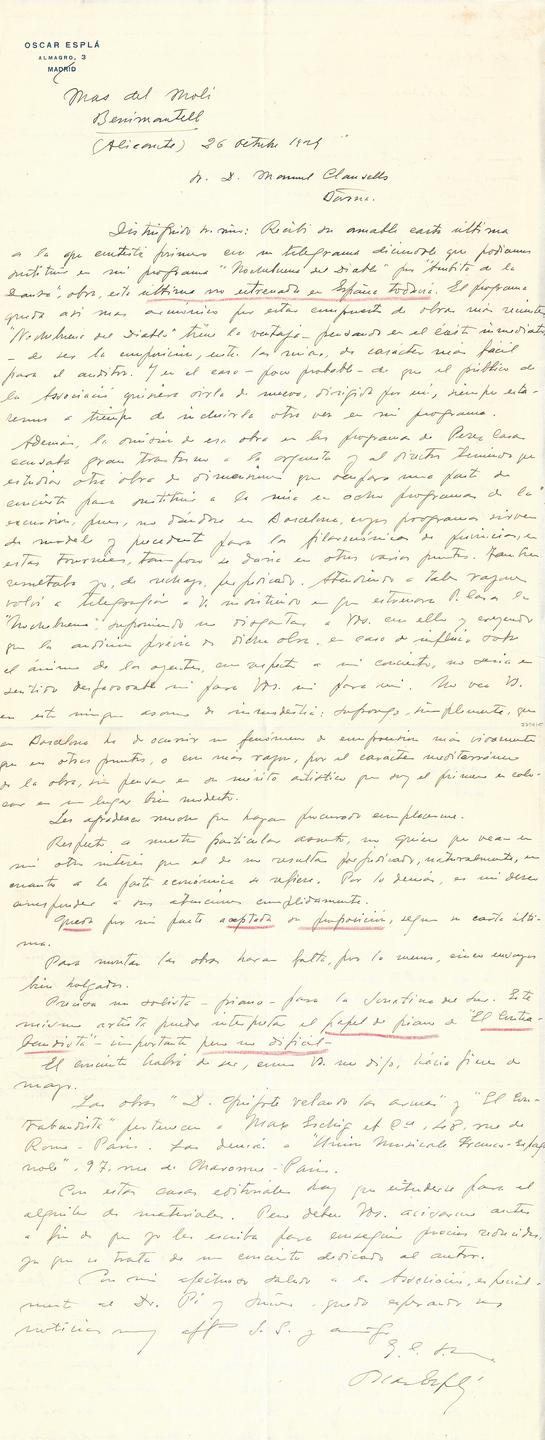 OSCAR ESPLÁ
ALMAGRO, 3
MADRID
Mas del Molí
Benimantell
(Alicante) 26 octubre 192
Sr. D. Manuel Clausells
Barna.
Distinguido Sr. mío: Recibí su amable carta última
a la que contesté primero con un telegrama diciendo que podíamos
sustituir en mi programa "Nochebuena del Diablo" por "Ámbito de la
Danza", obra, esta última no estrenada en España todavía. El programa
queda así más armónico por estar compuesto de obras más recientes
"Nochebuena del Diablo" tiene la ventaja - pensando en el éxito inmediato
- de ser la composición, entre las mías, de carácter más fácil
para el auditor. Y en el caso - poco probable - de que el público de
la Asociació quisiera oirla de nuevo, dirigida por mí, siempre esta-
remos a tiempo de incluirla otra vez en mi programa.
Además, la omisión de esa obra en los programas de Pérez Casas
causaba gran trastorno a la orquesta y al director teniendo que
estudiar otra obra de dimensiones que ocupara una parte de
concierto para sustituir a la mía en ocho programas de la
excursión, pues, no dándose en Barcelona, cuyos programas sirven
de modelo y precedente para las filarmónicas de provincias, en
estas tournées, tampoco se daría en otros varios puntos. También
resultaba yo, de rechazo, perjudicado. Atendiendo a tales razones
volví a telegrafiar a V. insistiendo en que estrenara P. Casas la
"Nochebuena", suponiendo no disgustar a Vds. con ello y creyendo
que la audición previa de dicha obra, en caso de influir sobre
el ánimo de los oyentes, con respecto a mi concierto, no sería en
sentido desfavorable ni para Vds. ni para mí. No vea V.
en esto ningún asomo de inmodestia; supongo, simplemente, que
en Barcelona ha de ocurrir un fenómeno de comprensión más vivamente
que en otros puntos, o con más razón, por el carácter mediterráneo
de la obra, sin pensar en su mérito artístico que soy el primero en colo-
car en un lugar bien modesto.
Les agradezco mucho que hayan procurado complacerme.
Respecto a nuestro particular asunto, no quiero que vean en
mí otro interés que el de no resultar perjudicado, naturalmente, en
cuanto a la parte económica se refiere. Por lo demás, es mi deseo
corresponder a sus atenciones cumplidamente.
Queda por mi parte aceptada su proposición, según su carta últi-
ma.
Para montar las obras harán falta, por lo menos, cinco ensayos
bien holgados.
Precisa un solista - piano - para la Sonatina del Sur. Este
mismo artista puede interpretar el papel de piano de "El Contra-
bandista" - importante pero no difícil -
El concierto habrá de ser, como V. me dijo, hacia fines de
mayo.
Las obras "D. Quijote velando las armas" y "El Con-
trabandista" pertenecen a Max Eschig et Cie, 48, rue de
Rome - París. Las demás a "Unión Musicale Franco-Espag-
nole", 97, rue de Charonne - París.
Con estas casas editoriales hay que entenderse para el
alquiler de materiales. Pero deben Vds. avisarme antes
a fin de que yo les escriba para conseguir precios reducidos,
ya que se trata de un concierto dedicado al autor.
Con mi afectuoso saludo a la Associació, especial-
mente al Dr. Pí y Suñer, quedo esperando sus
noticias muy affº S. S. y amigo
Oscar Esplá